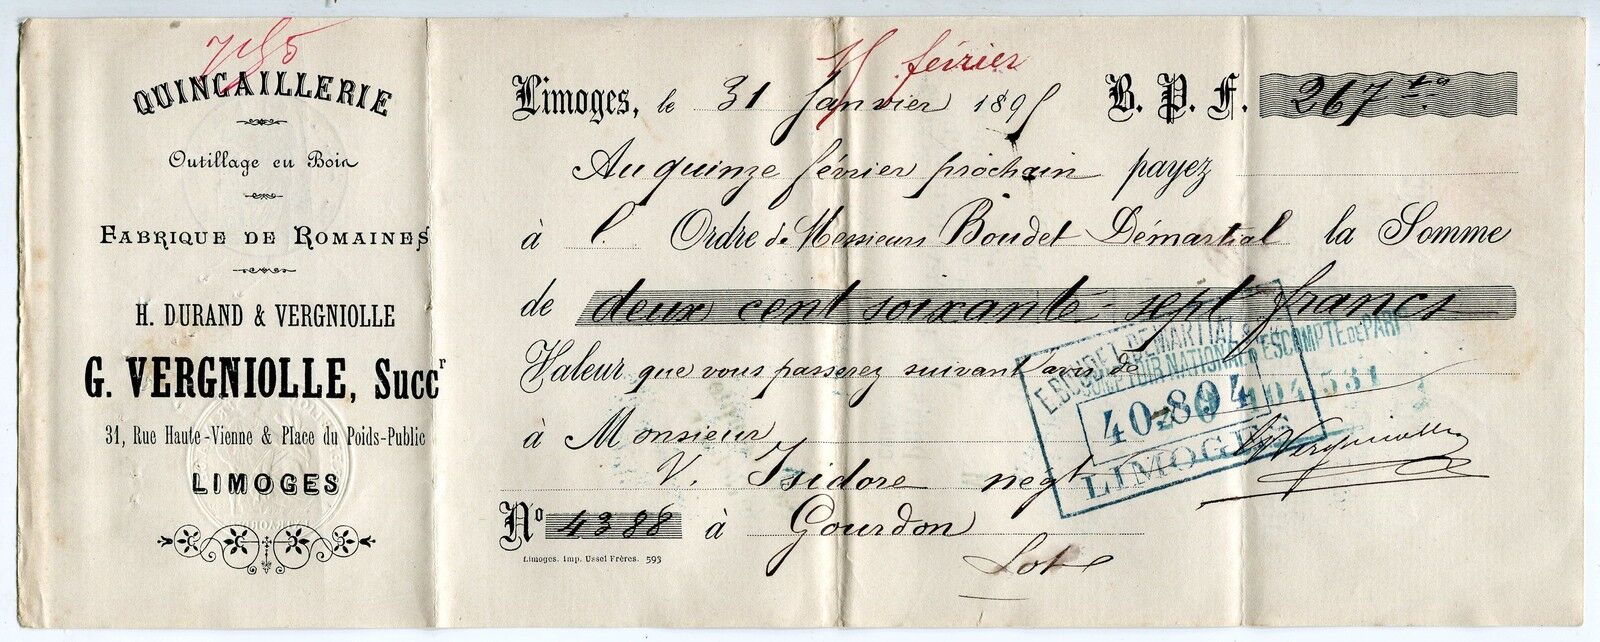 QUINCAILLERIE
Outillage en Bois
FABRIQUE DE ROMAINES
H. DURAND & VERGNIOLLE
G. VERGNIOLLE, Succr
31, Rue Haute-Vienne & Place du Poids-Public
LIMOGES
15 février
Limoges, le 31 Janvier 1895 B. P. F. 267
Au quinze février prochain payez
à l. Ordre de Messieurs Boudet Démartial la Somme
de deux cent soixante-sept francs
Valeur que vous passerez suivant avis de
à Monsieur
V. Isidore negt
No 4388 à Gourdon
Lot
Limoges. Imp. Ussel Frères. 593
E. BOUDET DEMARTIAL &
COMPTOIR NATIONAL D'ESCOMPTE DE PARIS
40.804
LIMOGES
G Vergniolle